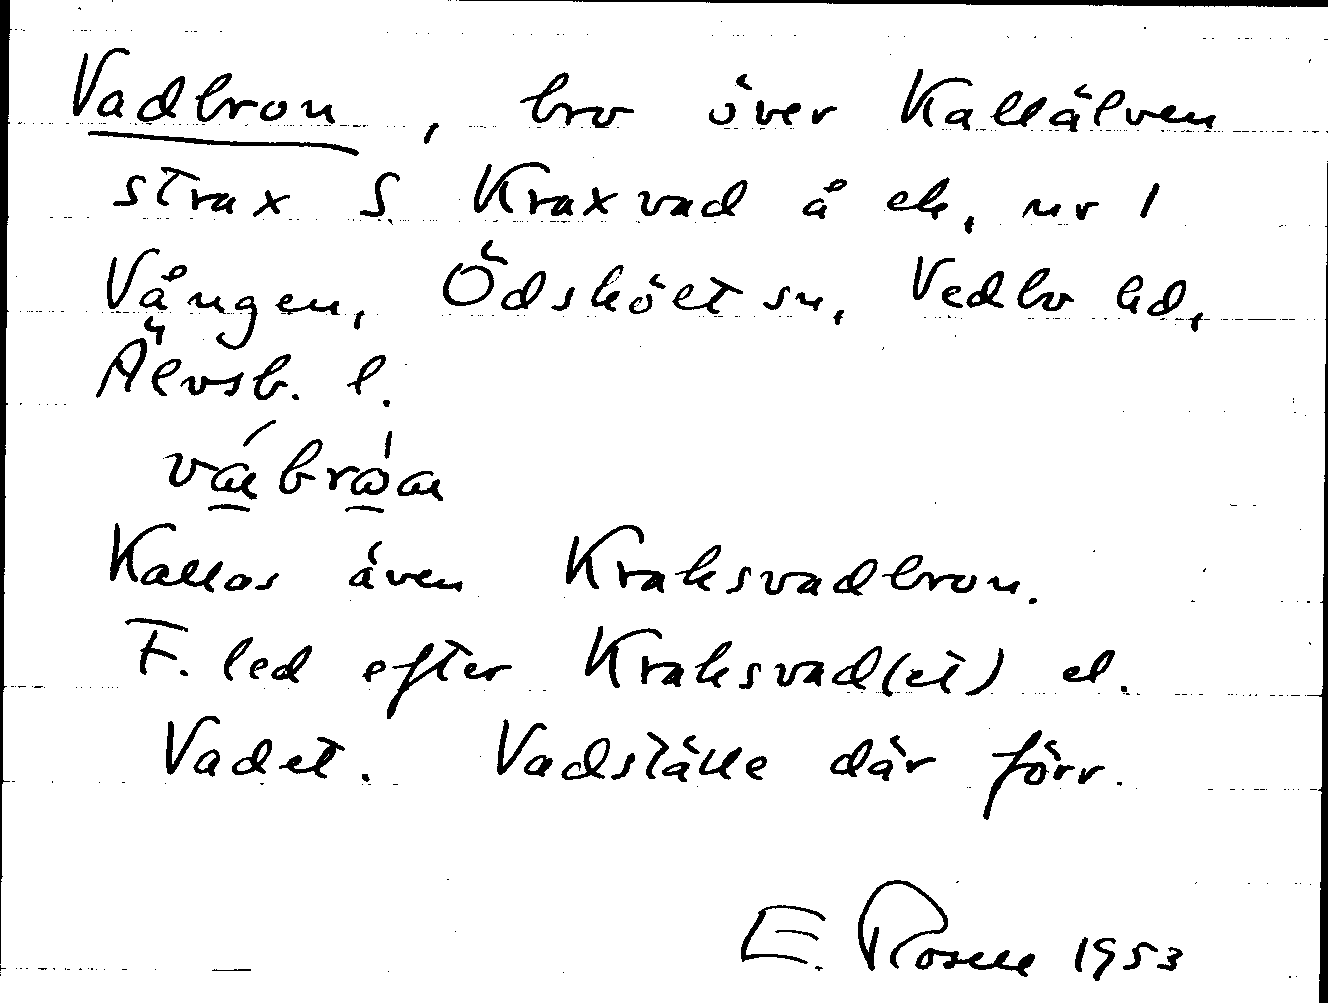 Vadbron, bro över Kallälven
strax S Kraxvad å ek. nr 1
Vången, Ödskölt sn, Vedbo hd,
Älvsb. l.
Kallas även Kraksvadbron.
F. led efter Kraksvad(et) el.
Vadet. Vadställe där förr.
E. Rosell 1953